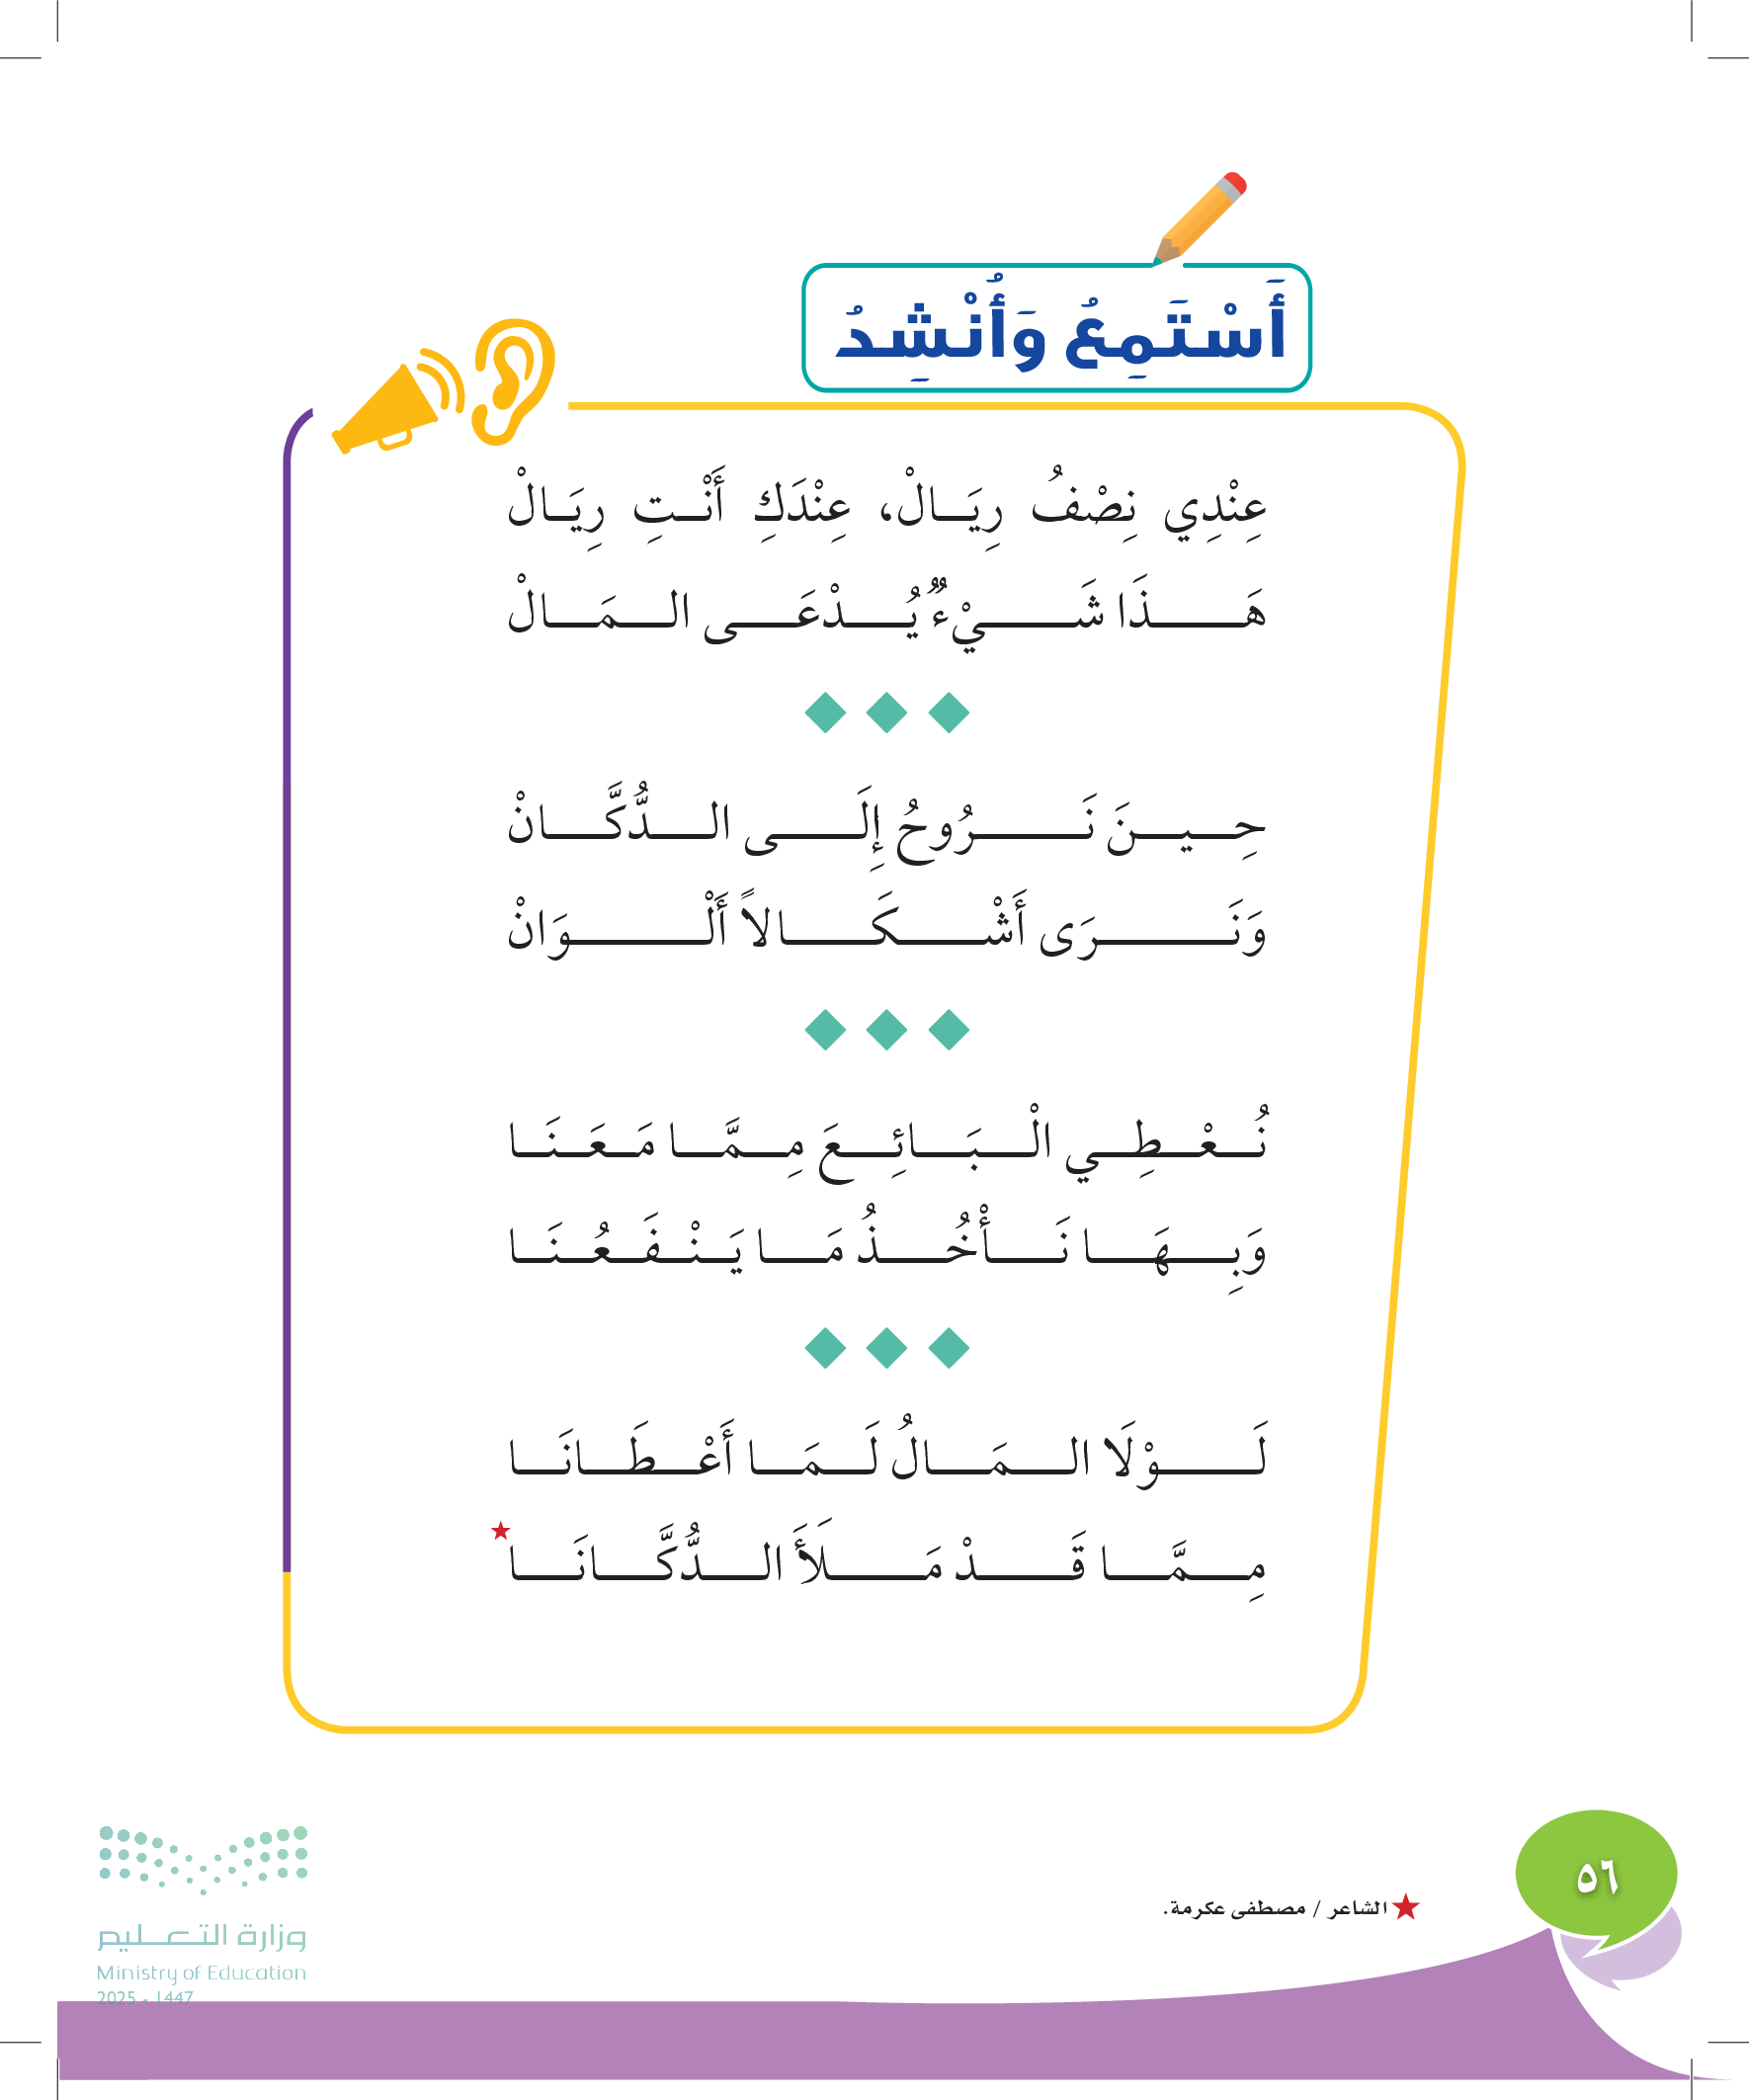 أَسْتَمِعُ وَأُنْشِدُ
عِنْدِي نِصْفُ رِيَالْ، عِنْدَكِ أَنْتِ رِيَالْ
هَذَا شَيْءٌ يُدْعَى المَالْ
حِينَ نَرُوحُ إِلَى الدُّكَّانْ
وَنَرَى أَشْكَالاً أَلْوَانْ
نُعْطِي الْبَائِعَ مِمَّا مَعَنَا
وَبِهَا نَأْخُذُ مَا يَنْفَعُنَا
لَوْلَا المَالُ لَمَا أَعْطَانَا
مِمَّا قَدْ مَلَأَ الدُّكَّانَا
الشاعر / مصطفى عكرمة.
٥٦
وزارة التعليم
Ministry of Education
2025 - 1447